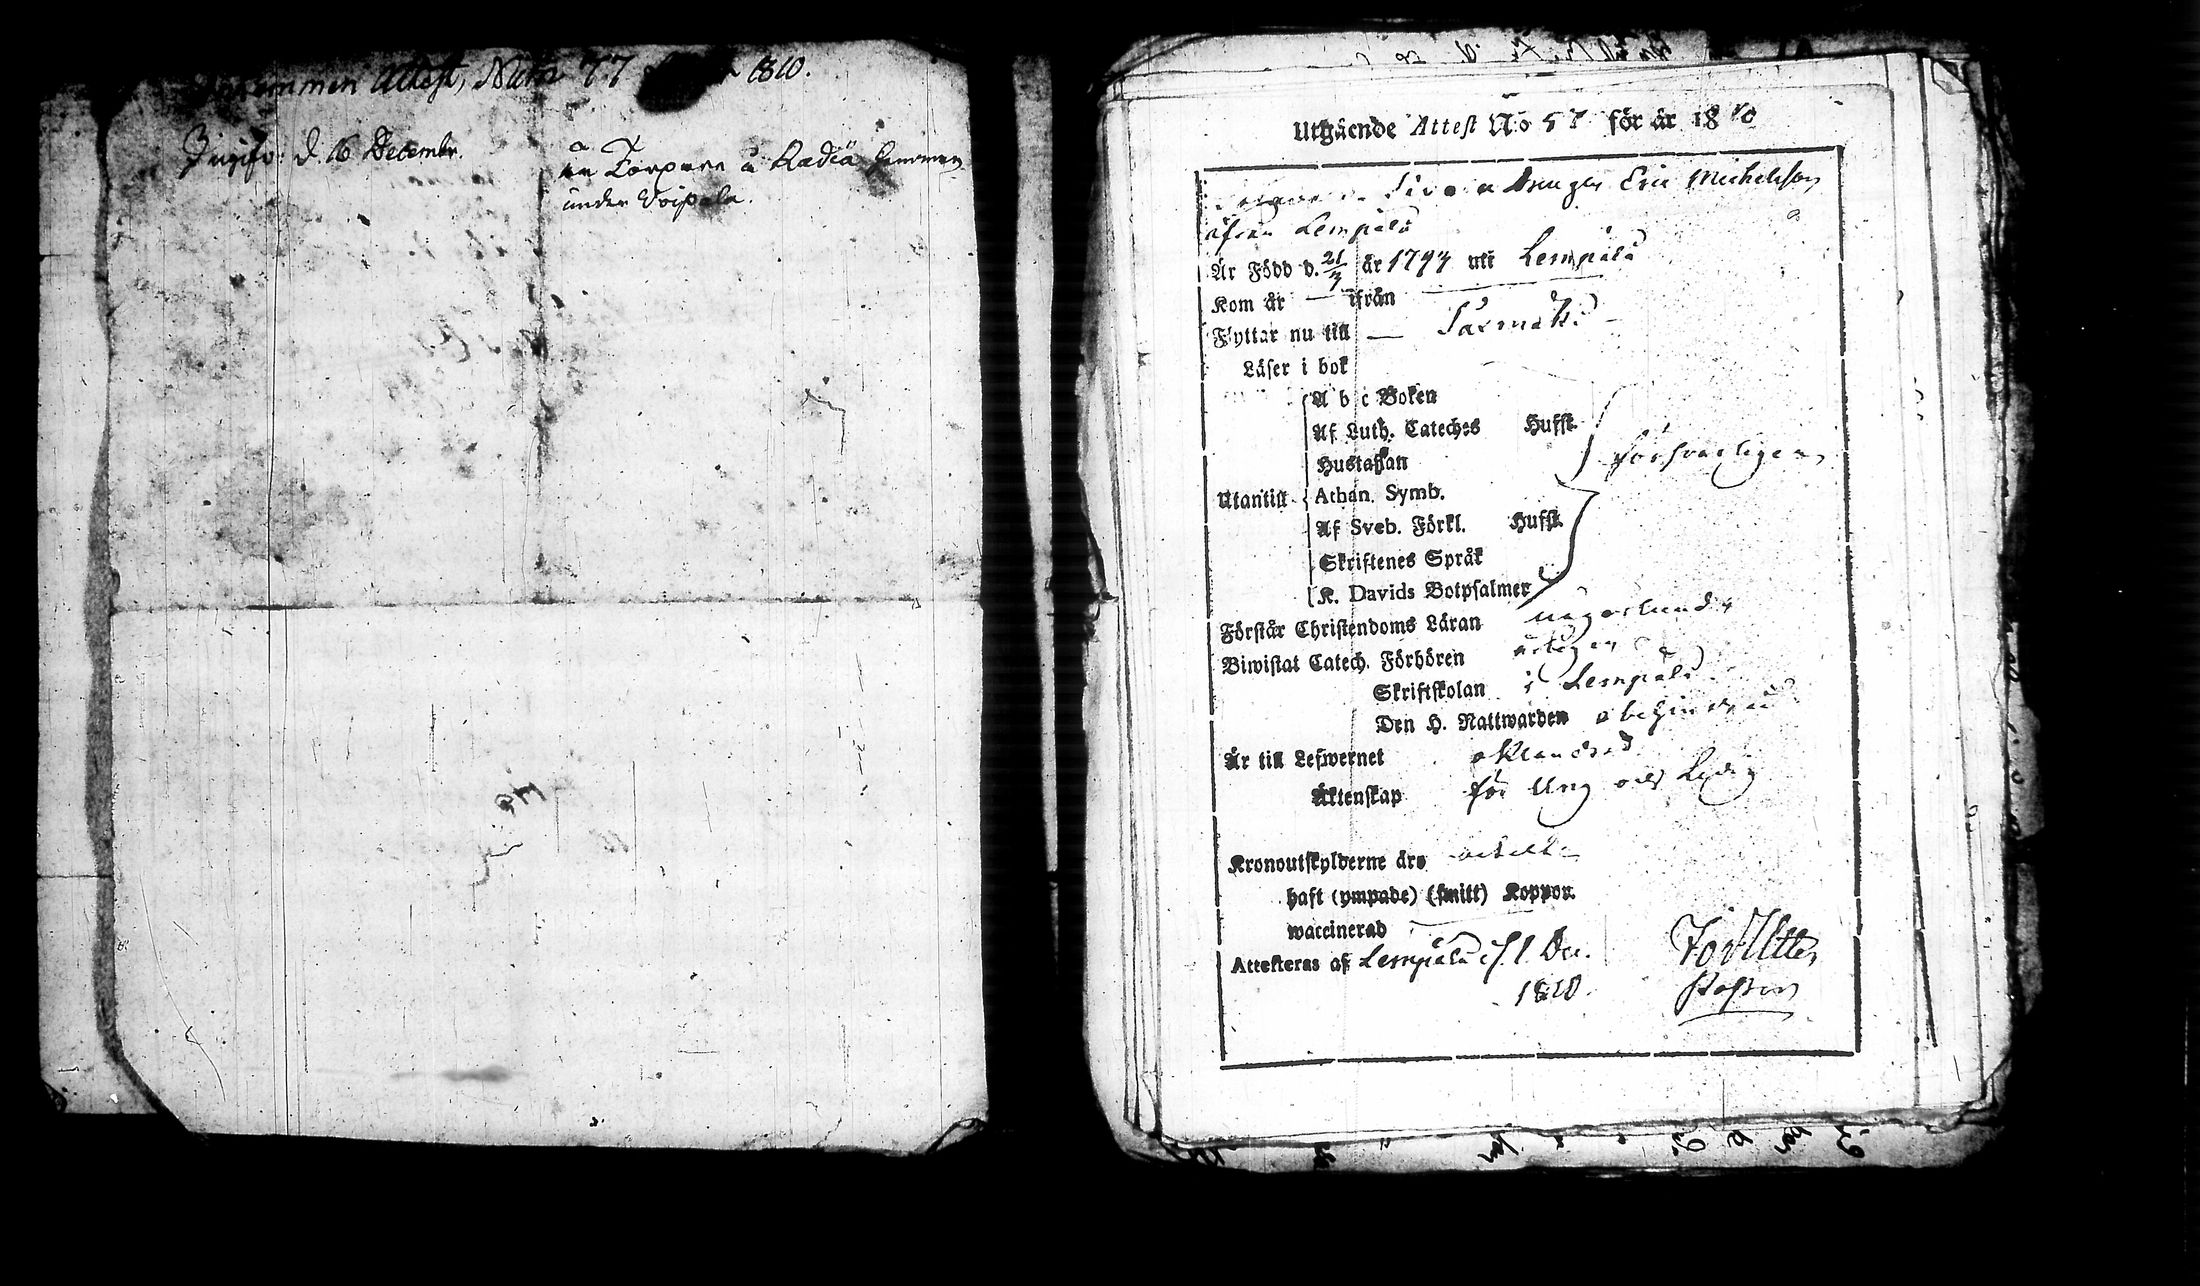 Inkommen Attest, Num 77 1810.
Ingifv. d. 16 Decembr.
under Voipala.
Utgående Attest No 57 för år 1810
Drengen Eric Michelsson
ifrån Lempälä
Är Född d. 21/3 år 1793 uti Lempälä
Kom år — ifrån —
Flyttar nu till — Saxmäki
Läser i bok
A b c Boken
Af Luth. Cateches Hufst.
Hustaflan
försvarligen
Utantill Athan. Symb.
Af Sveb. Förkl. Hufst.
Skriftenes Språk
K. Davids Botpsalmer
Förstår Christendoms Läran någorlunda
Biwistat Catech. Förhören årligen
Skriftskolan i Lempälä
Den H. Nattwarden obehindrad
Är till Lefwernet oklandrad
Äktenskap för Ung och Ledig
Kronoutskylderne äro betalte
haft (ympade) (smitt) Koppor.
waccinerad —
Attesteras af Lempälä d. 1 Dec.
1810
Pastor